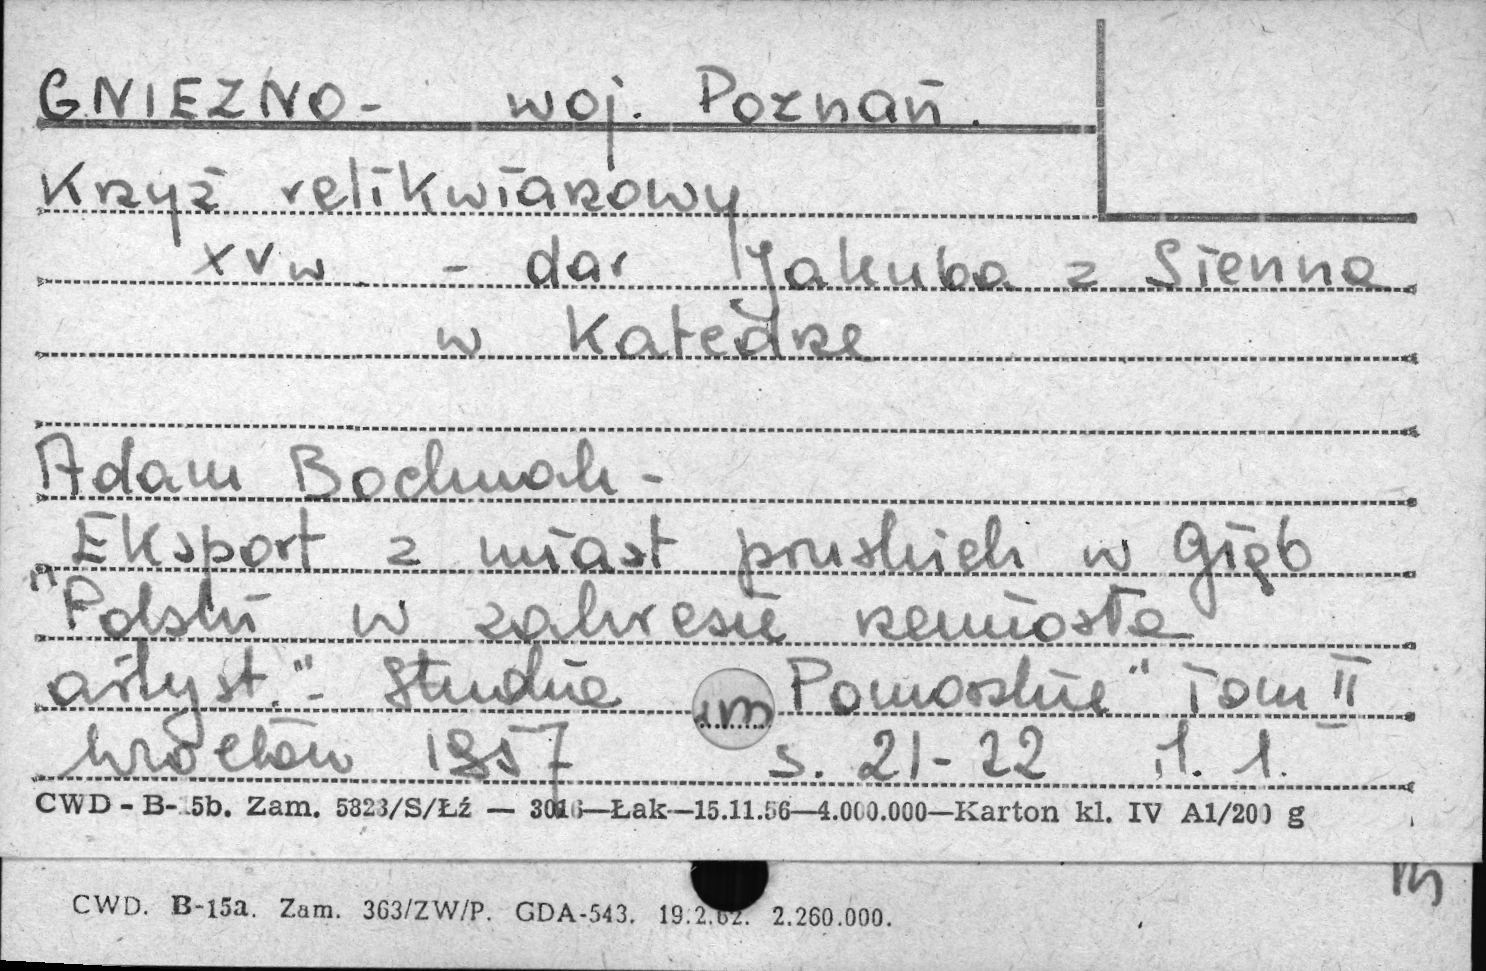 GNIEZNO- woj. Poznań.
Krzyż relikwiarzowy
XV w. - dar Jakuba z Sienna
w Katedrze
Adam Bochnak -
Eksport z miast pruskich w głąb
"Polski w zakresie rzemiosła
artyst."- Studia Pomorskie" Tom II
Wrocław 1957 s. 21-22 il. 1.
CWD - B-15b. Zam. 5823/S/Łź — 3016—Łak—15.11.56—4.000.000—Karton kl. IV A1/200 g
CWD. B-15a. Zam. 363/ZW/P. GDA-543. 19.2.62. 2.260.000.